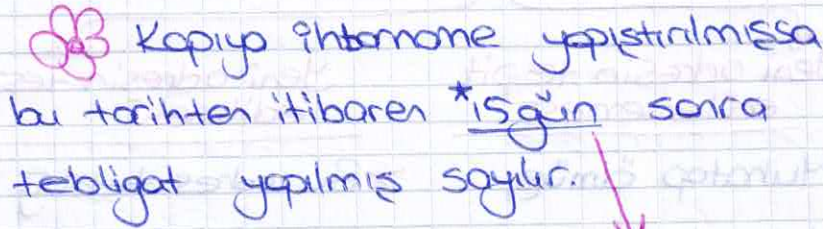 Kapıya ihbarname yapıştırılmışsa
bu tarihten itibaren *15gün sonra
tebligat yapılmış sayılır.